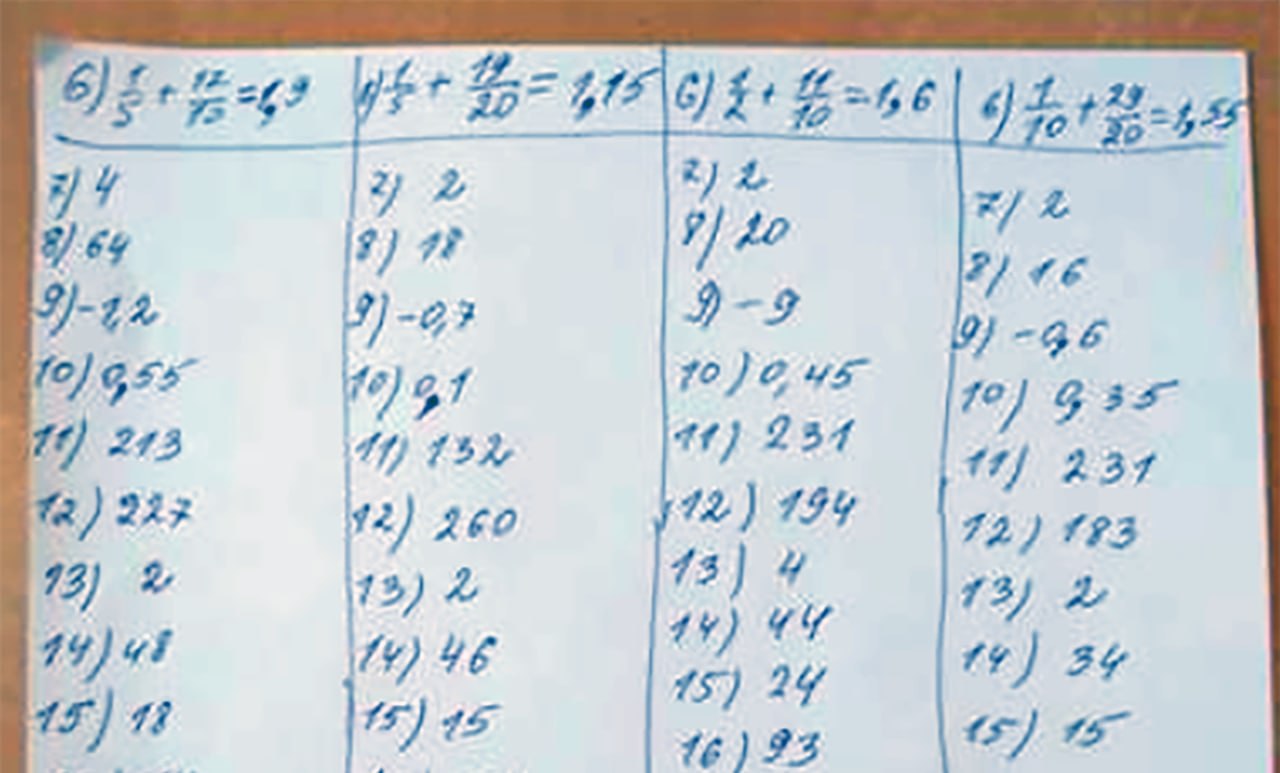 6) 1/5 + 17/10 = 1,9
7) 4
8) 64
9) -1,2
10) 0,55
11) 213
12) 227
13) 2
14) 48
15) 18
1/5 + 19/20 = 1,15
7) 2
8) 18
9) -0,7
10) 0,1
11) 132
12) 260
13) 2
14) 46
15) 15
6) 1/2 + 11/10 = 1,6
7) 2
8) 20
9) -9
10) 0,45
11) 231
12) 194
13) 4
14) 44
15) 24
16) 93
6) 1/10 + 29/20 = 1,55
7) 2
8) 16
9) -0,6
10) 0,35
11) 231
12) 183
13) 2
14) 34
15) 15